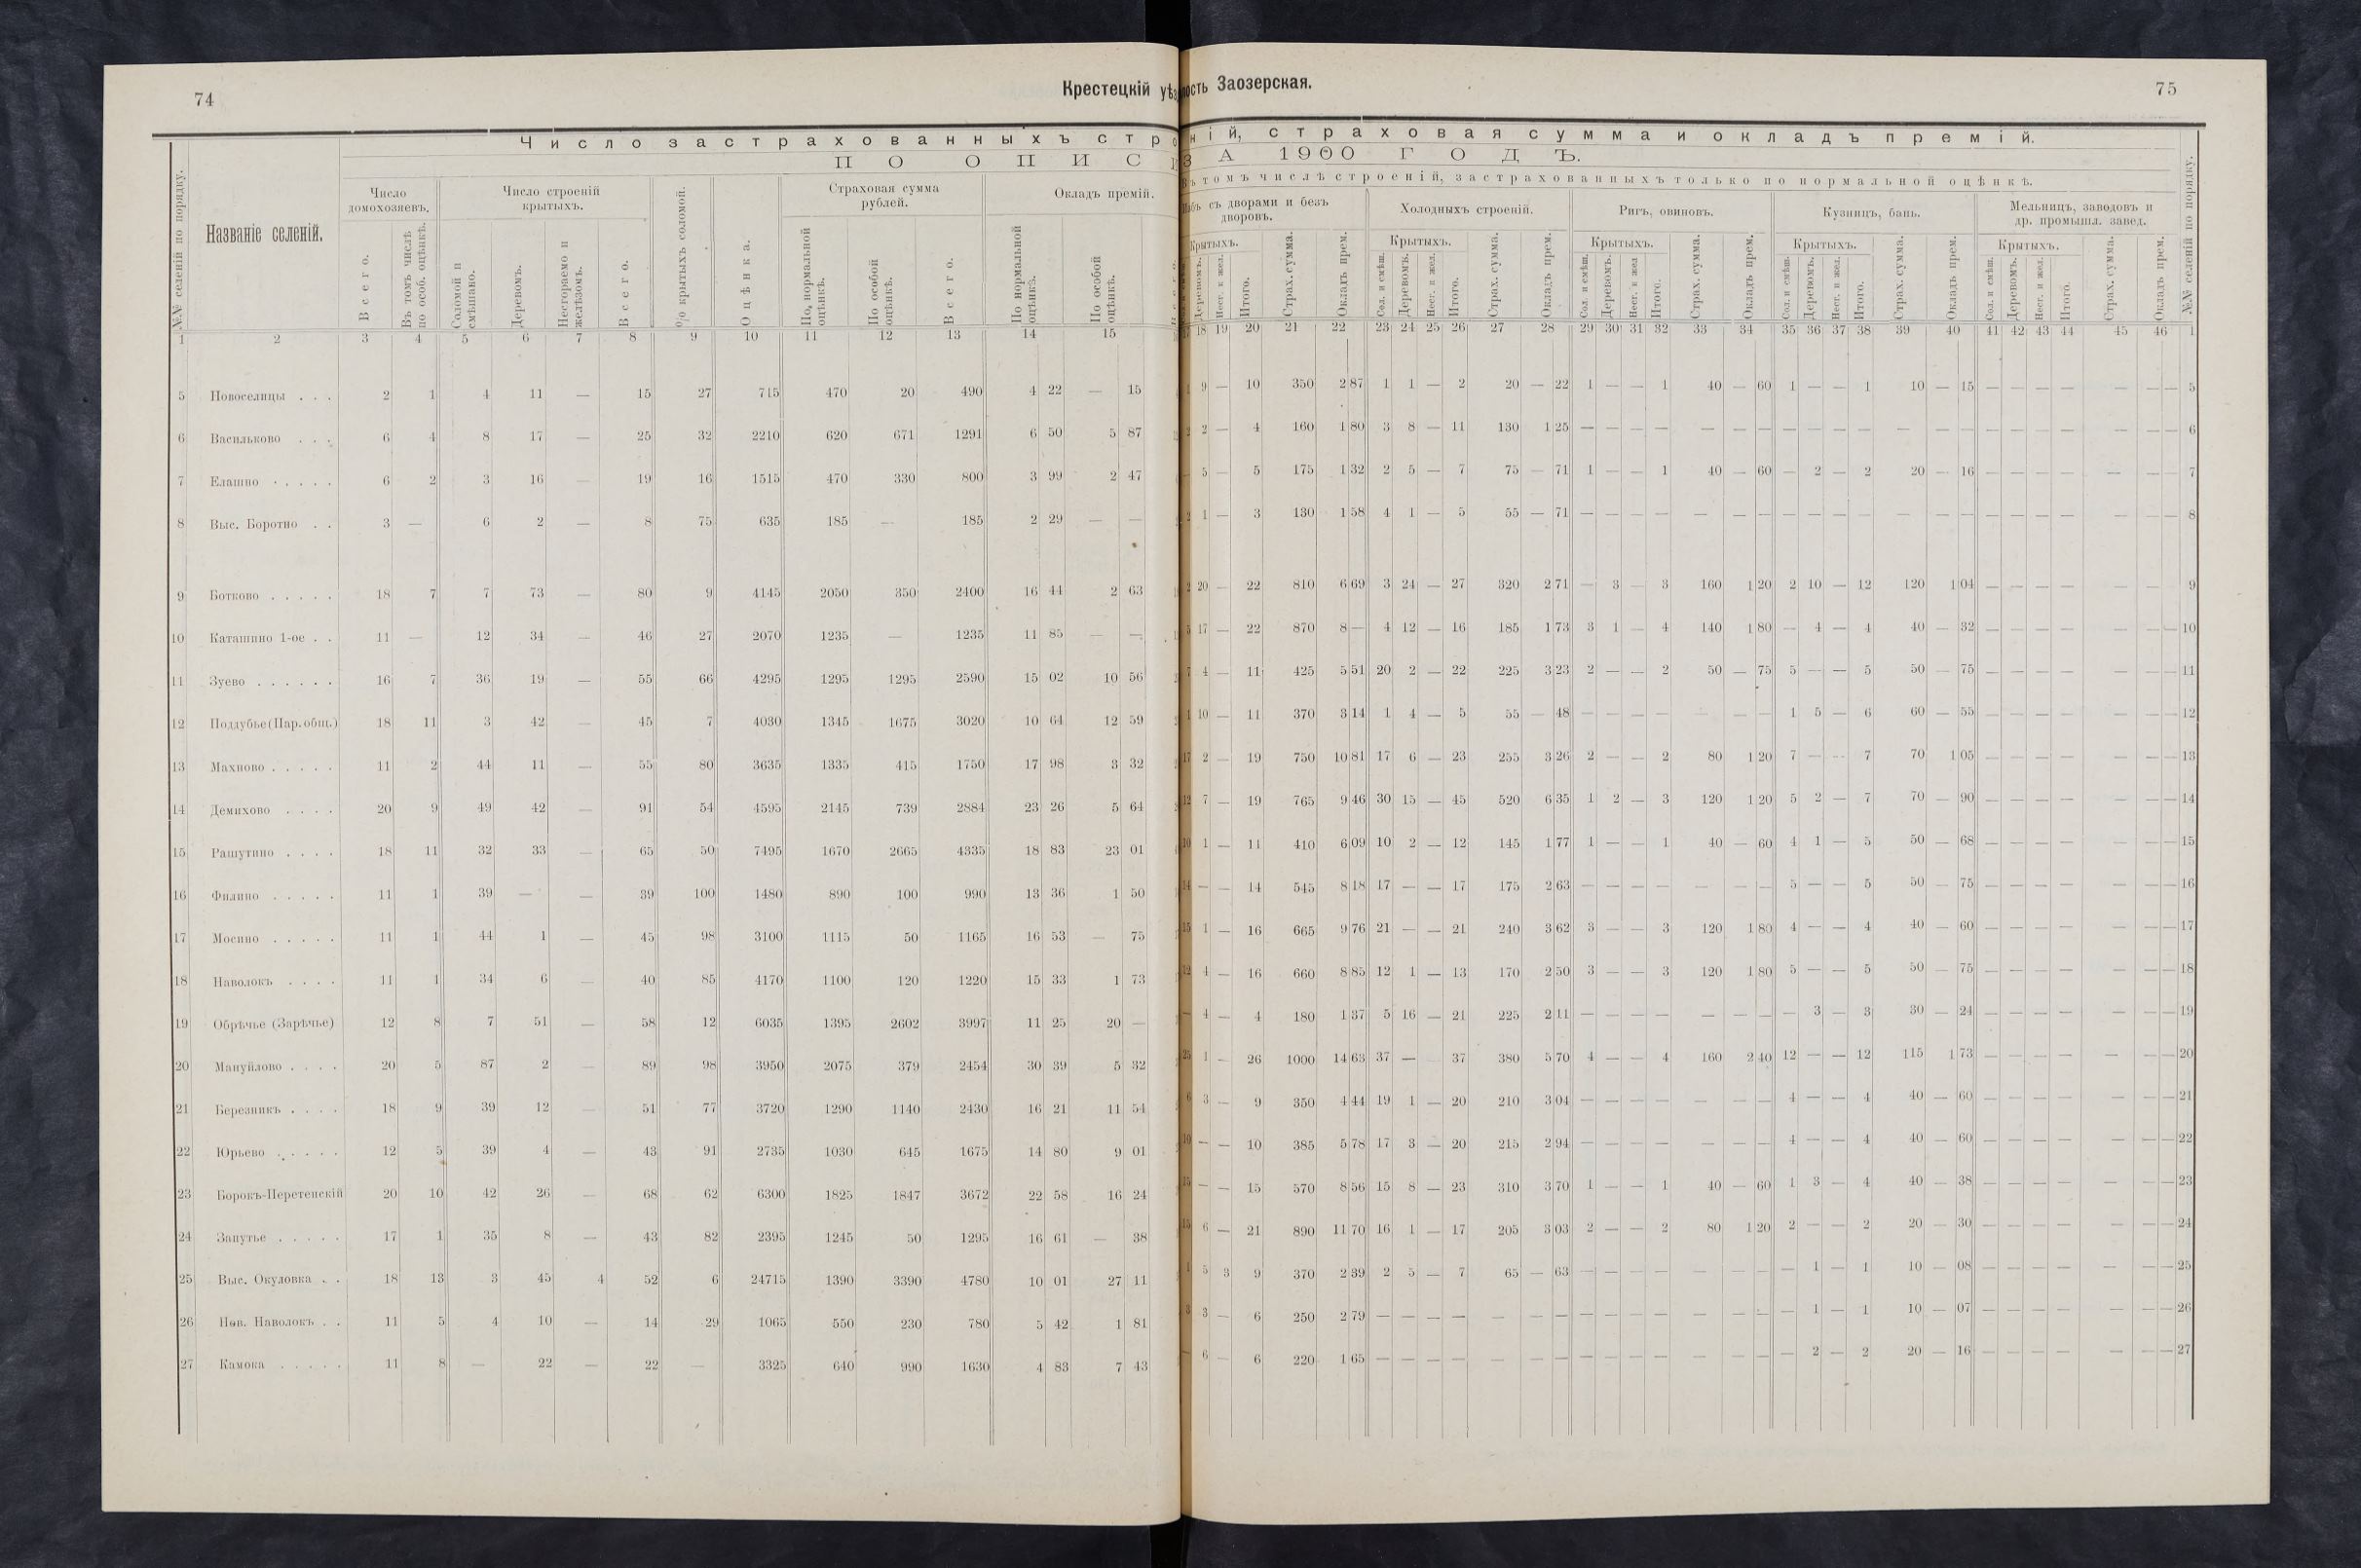 74
Крестецкій уѣз
ость Заозерская.
75
Число застрахованныхъ стро
ній, страховая сумма и окладъ премій.
ПО ОПИС
ЗА 1900 ГОДЪ.
Въ томъ числѣ строеній, застрахованныхъ только по нормальной оцѣнкѣ.
№№ селеній по порядку.
Названіе селеній.
Число домохозяевъ.
Всего.
Въ томъ числѣ по особ. оцѣнкѣ.
Число строеній крытыхъ.
Соломой и смѣшано.
Деревомъ.
Несгораемо и желѣзомъ.
Всего.
% крытыхъ соломой.
Оцѣнка.
Страховая сумма рублей.
По нормальной оцѣнкѣ.
По особой оцѣнкѣ.
Всего.
Окладъ премій.
По нормальной оцѣнкѣ.
По особой оцѣнкѣ.
съ дворами и безъ дворовъ.
Крытыхъ.
Деревомъ.
Несг. и жел.
Итого.
Страх. сумма.
Окладъ прем.
Холодныхъ строеній.
Крытыхъ.
Сол. и смѣш.
Деревомъ.
Несг. и жел.
Итого.
Страх. сумма.
Окладъ прем.
Ригъ, овиновъ.
Крытыхъ.
Сол. и смѣш.
Деревомъ.
Несг. и жел
Итого.
Страх. сумма.
Окладъ прем.
Кузницъ, бань.
Крытыхъ.
Сол. и смѣш.
Деревомъ.
Несг. и жел.
Итого.
Страх. сумма.
Окладъ прем.
Мельницъ, заводовъ и др. промышл. завед.
Крытыхъ.
Сол. и смѣш.
Деревомъ.
Несг. и жел.
Итого.
Страх. сумма.
Окладъ прем.
№№ селеній по порядку.
1 2 3 4 5 6 7 8 9 10 11 12 13 14 15 18 19 20 21 22 23 24 25 26 27 28 29 30 31 32 33 34 35 36 37 38 39 40 41 42 43 44 45 46 1
5 Новоселицы . . . 2 1 4 11 — 15 27 715 470 20 490 4 22 — 15 9 — 10 350 2 87 1 1 — 2 20 — 22 1 — — 1 40 — 60 1 — — 1 10 — 15 — — — — — — — 5
6 Васильково . . . 6 4 8 17 — 25 32 2210 620 671 1291 6 50 5 87 2 2 — 4 160 1 80 3 8 — 11 130 1 25 — — — — — — — — — — — — — — — — — — — — — 6
7 Елашно . . . . . 6 2 3 16 — 19 16 1515 470 330 800 3 99 2 47 — 5 — 5 175 1 32 2 5 — 7 75 — 71 1 — — 1 40 — 60 — 2 — 2 20 — 16 — — — — — — — 7
8 Выс. Боротно . . 3 — 6 2 — 8 75 635 185 — 185 2 29 — — 2 1 — 3 130 1 58 4 1 — 5 55 — 71 — — — — — — — — — — — — — — — — — — — — — 8
9 Ботково . . . . . 18 7 7 73 — 80 9 4145 2050 350 2400 16 44 2 63 2 20 — 22 810 6 69 3 24 — 27 320 2 71 — 3 — 3 160 1 20 2 10 — 12 120 1 04 — — — — — — — 9
10 Каташино 1-ое . . 11 — 12 34 — 46 27 2070 1235 — 1235 11 85 — — 5 17 — 22 870 8 — 4 12 — 16 185 1 73 3 1 — 4 140 1 80 — 4 — 4 40 — 32 — — — — — — — 10
11 Зуево . . . . . . 16 7 36 19 — 55 66 4295 1295 1295 2590 15 02 10 56 7 4 — 11 425 5 51 20 2 — 22 225 3 23 2 — — 2 50 — 75 5 — — 5 50 — 75 — — — — — — — 11
12 Поддубье (Пар. общ.) 18 11 3 42 — 45 7 4030 1345 1675 3020 10 64 12 59 1 10 — 11 370 3 14 1 4 — 5 55 — 48 — — — — — — — 1 5 — 6 60 — 55 — — — — — — — 12
13 Махново . . . . . 11 2 44 11 — 55 80 3635 1335 415 1750 17 98 3 32 17 2 — 19 750 10 81 17 6 — 23 255 3 26 2 — — 2 80 1 20 7 — — 7 70 1 05 — — — — — — — 13
14 Демихово . . . . 20 9 49 42 — 91 54 4595 2145 739 2884 23 26 5 64 12 7 — 19 765 9 46 30 15 — 45 520 6 35 1 2 — 3 120 1 20 5 2 — 7 70 — 90 — — — — — — — 14
15 Рашутино . . . . 18 11 32 33 — 65 50 7495 1670 2665 4335 18 83 23 01 10 1 — 11 410 6 09 10 2 — 12 145 1 77 1 — — 1 40 — 60 4 1 — 5 50 — 68 — — — — — — — 15
16 Филино . . . . . 11 1 39 — — 39 100 1480 890 100 990 13 36 1 50 14 — — 14 545 8 18 17 — — 17 175 2 63 — — — — — — — 5 — — 5 50 — 75 — — — — — — — 16
17 Мосино . . . . . 11 1 44 1 — 45 98 3100 1115 50 1165 16 53 — 75 15 1 — 16 665 9 76 21 — — 21 240 3 62 3 — — 3 120 1 80 4 — — 4 40 — 60 — — — — — — — 17
18 Наволокъ . . . . 11 1 34 6 — 40 85 4170 1100 120 1220 15 33 1 73 12 4 — 16 660 8 85 12 1 — 13 170 2 50 3 — — 3 120 1 80 5 — — 5 50 — 75 — — — — — — — 18
19 Обрѣчье (Зарѣчье) 12 8 7 51 — 58 12 6035 1395 2602 3997 11 25 20 — — 4 — 4 180 1 37 5 16 — 21 225 2 11 — — — — — — — — 3 — 3 30 — 24 — — — — — — — 19
20 Мануйлово . . . . 20 5 87 2 — 89 98 3950 2075 379 2454 30 39 5 32 25 1 — 26 1000 14 63 37 — 37 380 5 70 4 — — 4 160 2 40 12 — — 12 115 1 73 — — — — — — — 20
21 Березникъ . . . . 18 9 39 12 — 51 77 3720 1290 1140 2430 16 21 11 54 6 3 — 9 350 4 44 19 1 — 20 210 3 04 — — — — — — — 4 — — 4 40 — 60 — — — — — — — 21
22 Юрьево . . . . . 12 5 39 4 — 43 91 2735 1030 645 1675 14 80 9 01 10 — — 10 385 5 78 17 3 — 20 215 2 94 — — — — — — — 4 — — 4 40 — 60 — — — — — — — 22
23 Борокъ-Перетенскій 20 10 42 26 — 68 62 6300 1825 1847 3672 22 58 16 24 15 — — 15 570 8 56 15 8 — 23 310 3 70 1 — — 1 40 — 60 1 3 — 4 40 — 38 — — — — — — — 23
24 Запутье . . . . . 17 1 35 8 — 43 82 2395 1245 50 1295 16 61 — 38 15 6 — 21 890 11 70 16 1 — 17 205 3 03 2 — — 2 80 1 20 2 — — 2 20 — 30 — — — — — — — 24
25 Выс. Окуловка . . 18 13 3 45 4 52 6 24715 1390 3390 4780 10 01 27 11 1 5 3 9 370 2 39 2 5 — 7 65 — 63 — — — — — — — — 1 — 1 10 — 08 — — — — — — — 25
26 Нов. Наволокъ . . 11 5 4 10 — 14 29 1065 550 230 780 5 42 1 81 3 3 — 6 250 2 79 — — — — — — — — — — — — — — — 1 — 1 10 — 07 — — — — — — — 26
27 Камока . . . . . 11 8 — 22 — 22 — 3325 640 990 1630 4 83 7 43 — 6 — 6 220 1 65 — — — — — — — — — — — — — — — 2 — 2 20 — 16 — — — — — — — 27